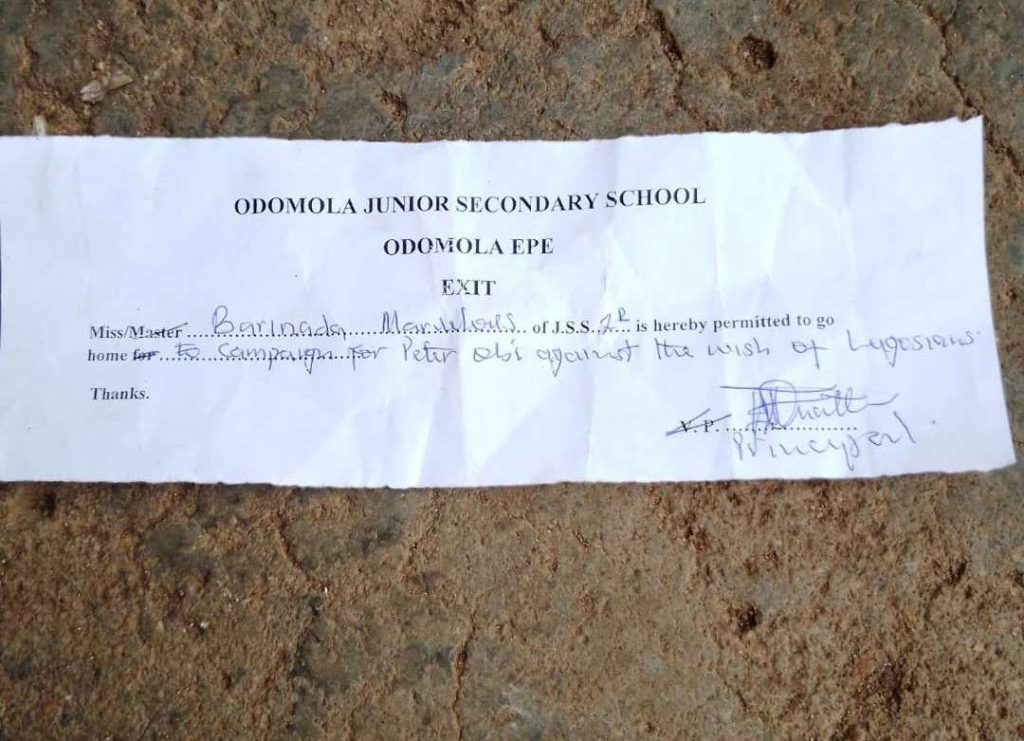 ODOMOLA JUNIOR SECONDARY SCHOOL
ODOMOLA EPE
EXIT
Miss/Master Barinada, of J.S.S. is hereby permitted to go
home for to campaign for Peter Obi against the wish of Lagosians
Thanks.
V.P.
Principal.